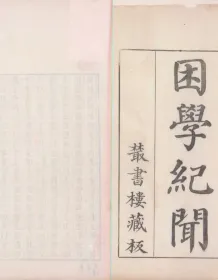 困學紀聞
叢書樓藏板